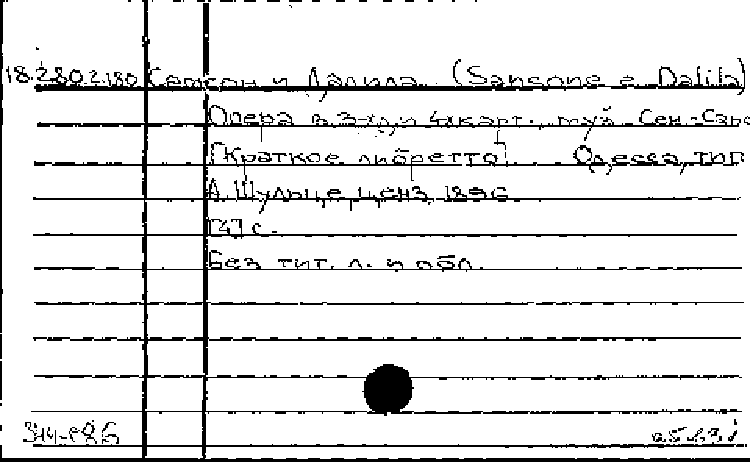 18.280.2.180 Самсон и Далила (Sansone e Dalila)
Опера в 3-х д. и 4х карт., муз. Сен-Санс
[Краткое либретто]. Одесса, тип.
А. Шульце, ценз. 1896.
[4] с.
Без тит. л. и обл.